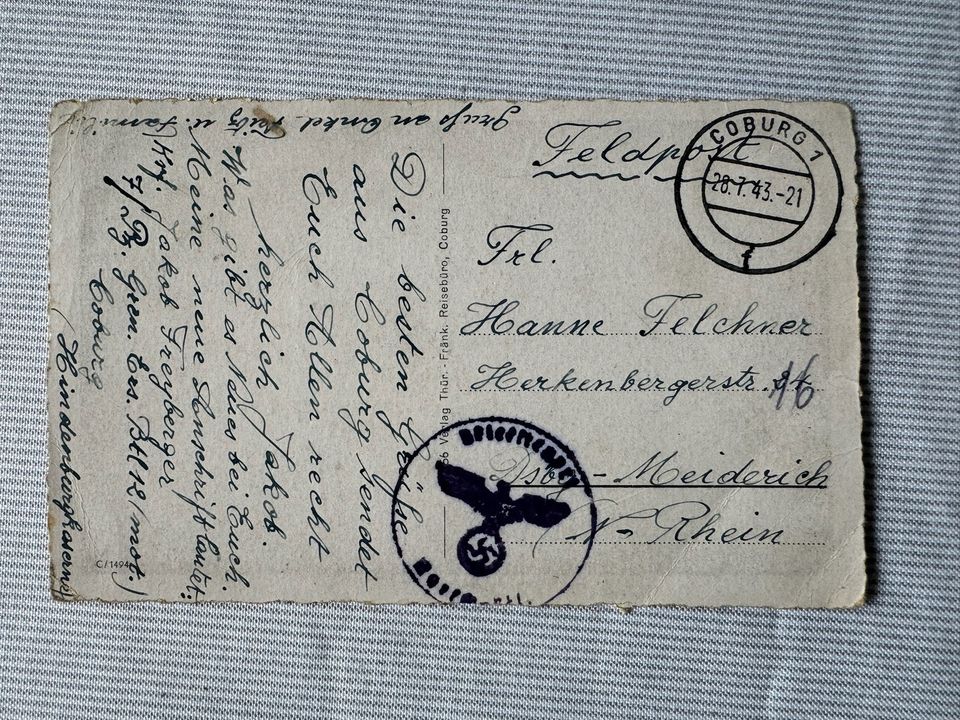 Feldpost
COBURG 1
28.7.43.-21
f
Frl.
Hanne Felchner
Herkenbergerstr. 16
Dsbg-Meiderich
N-Rhein
Briefstempel
Verlag Thür.-Fränk. Reisebüro, Coburg
Die besten Grüße
aus Coburg sendet
Euch Allen recht
herzlich Jakob.
Was gibt es Neues bei Euch.
Meine neue Anschrift lautet:
Jakob Freyberger
7/Pz. Gren. Ers. Btl 12/mot.
Coburg
(Hindenburgkaserne)
Gruß an Onkel u. Familie
C/1494